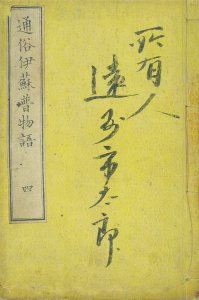 通俗伊蘇普物語
四
所有人
遠藤市太郎